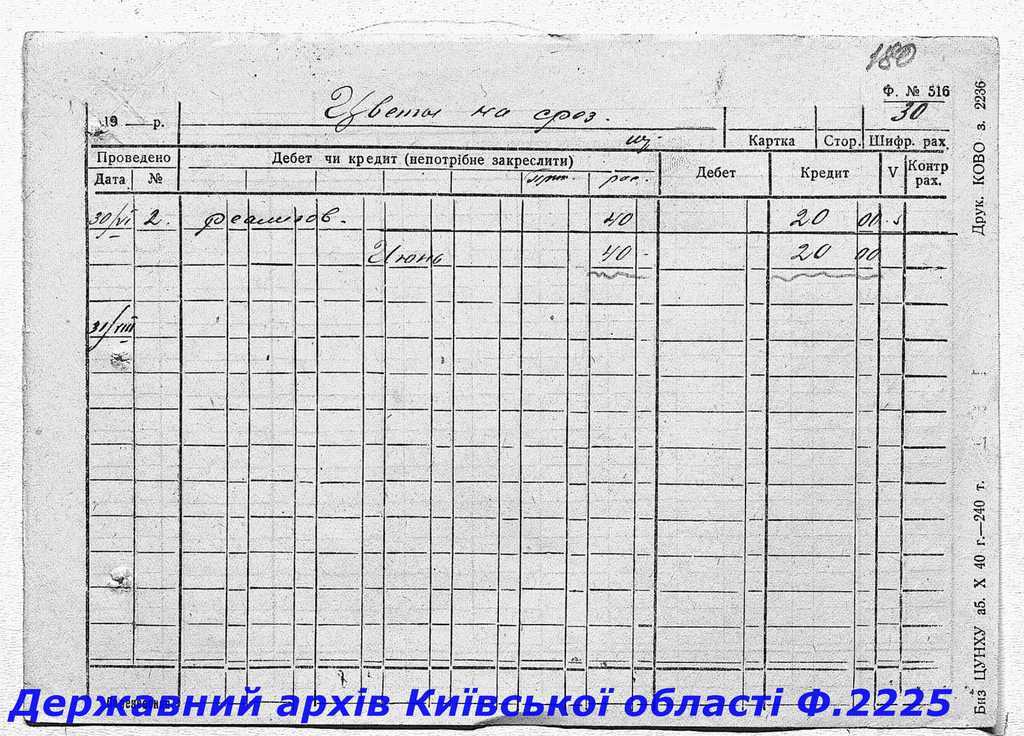 180
Ф. № 516
19 р. Цветы на срез. 30
шт. Картка Стор. Шифр. рах.
Проведено Дебет чи кредит (непотрібне закреслити) Дебет Кредит V Контр рах.
Дата № прих. рас.
30/VI 2. реализов. 40 20 00
Июнь 40 - 20 00
31/VIII
Друк. КОВО з. 2236
Биз ЦУНХУ а5. X 40 г.-240 т.
Державний архів Київської області Ф.2225